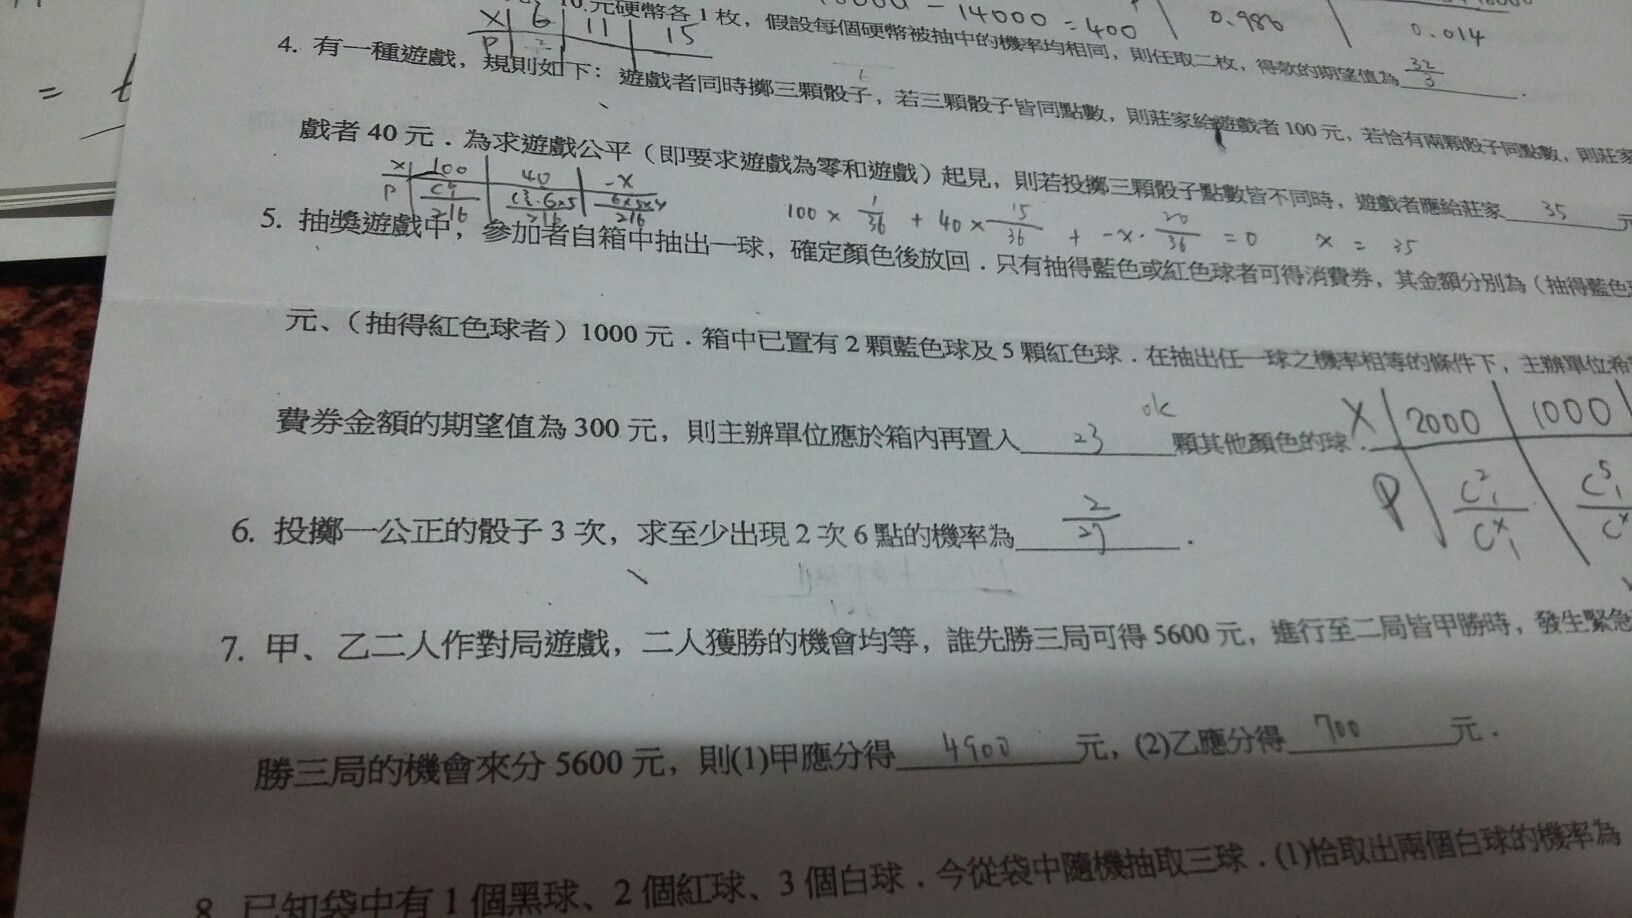 10元硬幣各1枚，假設每個硬幣被抽中的機率均相同，則任取二枚，得款的期望值為 32/3 .
- 14000 = 400
0.986
0.014
X 6 11 15
P
4. 有一種遊戲，規則如下：遊戲者同時擲三顆骰子，若三顆骰子皆同點數，則莊家給遊戲者100元，若恰有兩顆骰子同點數，則莊家
戲者40元．為求遊戲公平（即要求遊戲為零和遊戲）起見，則若投擲三顆骰子點數皆不同時，遊戲者應給莊家 35 元
X 100 40 -X
P
100 × 1/36 + 40 × 15/36 + -x · 20/36 = 0 x = 35
5. 抽獎遊戲中，參加者自箱中抽出一球，確定顏色後放回．只有抽得藍色或紅色球者可得消費券，其金額分別為（抽得藍色
元、（抽得紅色球者）1000元．箱中已置有2顆藍色球及5顆紅色球．在抽出任一球之機率相等的條件下，主辦單位希
ok
費券金額的期望值為300元，則主辦單位應於箱內再置入 23 顆其他顏色的球．
X 2000 1000
P
6. 投擲一公正的骰子3次，求至少出現2次6點的機率為 2/27 .
7. 甲、乙二人作對局遊戲，二人獲勝的機會均等，誰先勝三局可得5600元，進行至二局皆甲勝時，發生緊急
勝三局的機會來分5600元，則(1)甲應分得 4900 元，(2)乙應分得 700 元．
8. 已知袋中有1個黑球、2個紅球、3個白球．今從袋中隨機抽取三球．(1)恰取出兩個白球的機率為